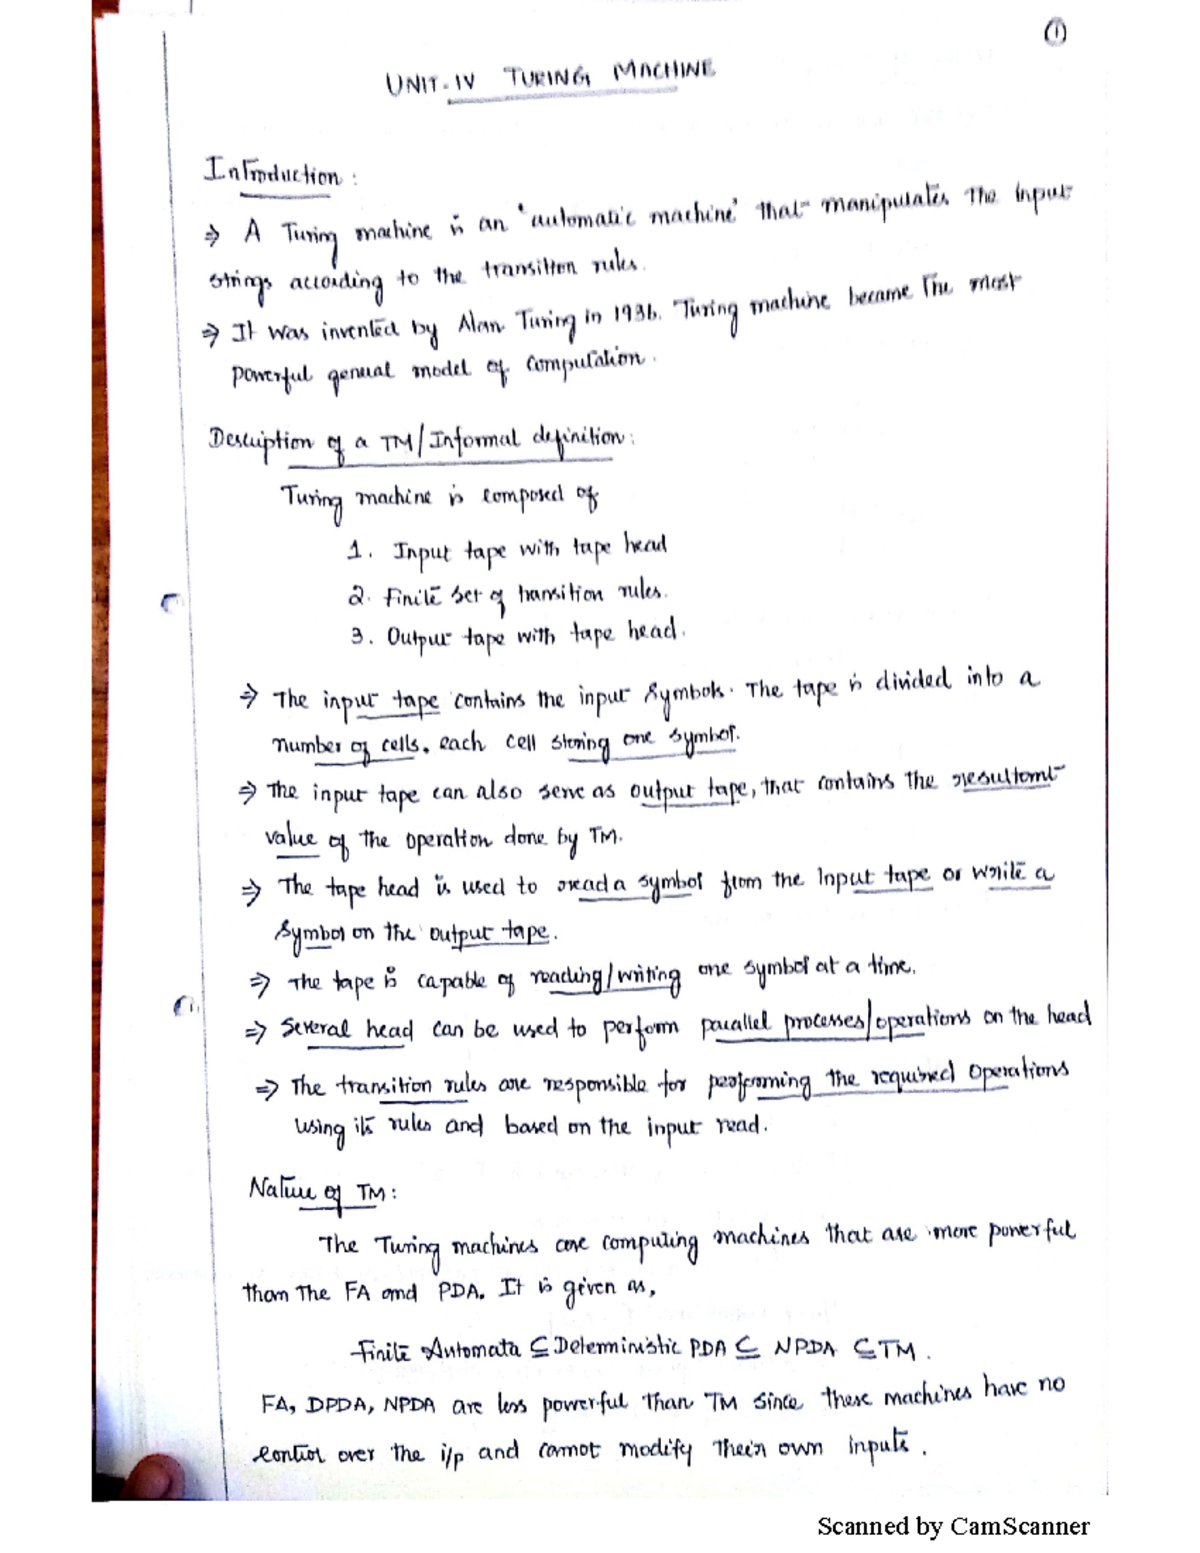 1
UNIT-IV TURING MACHINE
Introduction:
⇒ A Turing machine is an 'automatic machine' that manipulates the input
strings according to the transition rules.
⇒ It was invented by Alan Turing in 1936. Turing machine became the most
powerful general model of computation.
Description of a TM/Informal definition:
Turing machine is composed of
1. Input tape with tape head
2. Finite set of transition rules.
3. Output tape with tape head.
⇒ The input tape contains the input symbols. The tape is divided into a
number of cells, each cell storing one symbol.
⇒ The input tape can also serve as output tape, that contains the resultant
value of the operation done by TM.
⇒ The tape head is used to read a symbol from the Input tape or write a
symbol on the output tape.
⇒ The tape is capable of reading/writing one symbol at a time.
⇒ Several head can be used to perform parallel processes/operations on the head
⇒ The transition rules are responsible for performing the required operations
using its rules and based on the input read.
Nature of TM:
The Turing machines are computing machines that are more powerful
than the FA and PDA. It is given as,
Finite Automata ⊆ Deterministic PDA ⊆ NPDA ⊆ TM.
FA, DPDA, NPDA are less powerful than TM since these machines have no
control over the i/p and cannot modify their own inputs.
Scanned by CamScanner